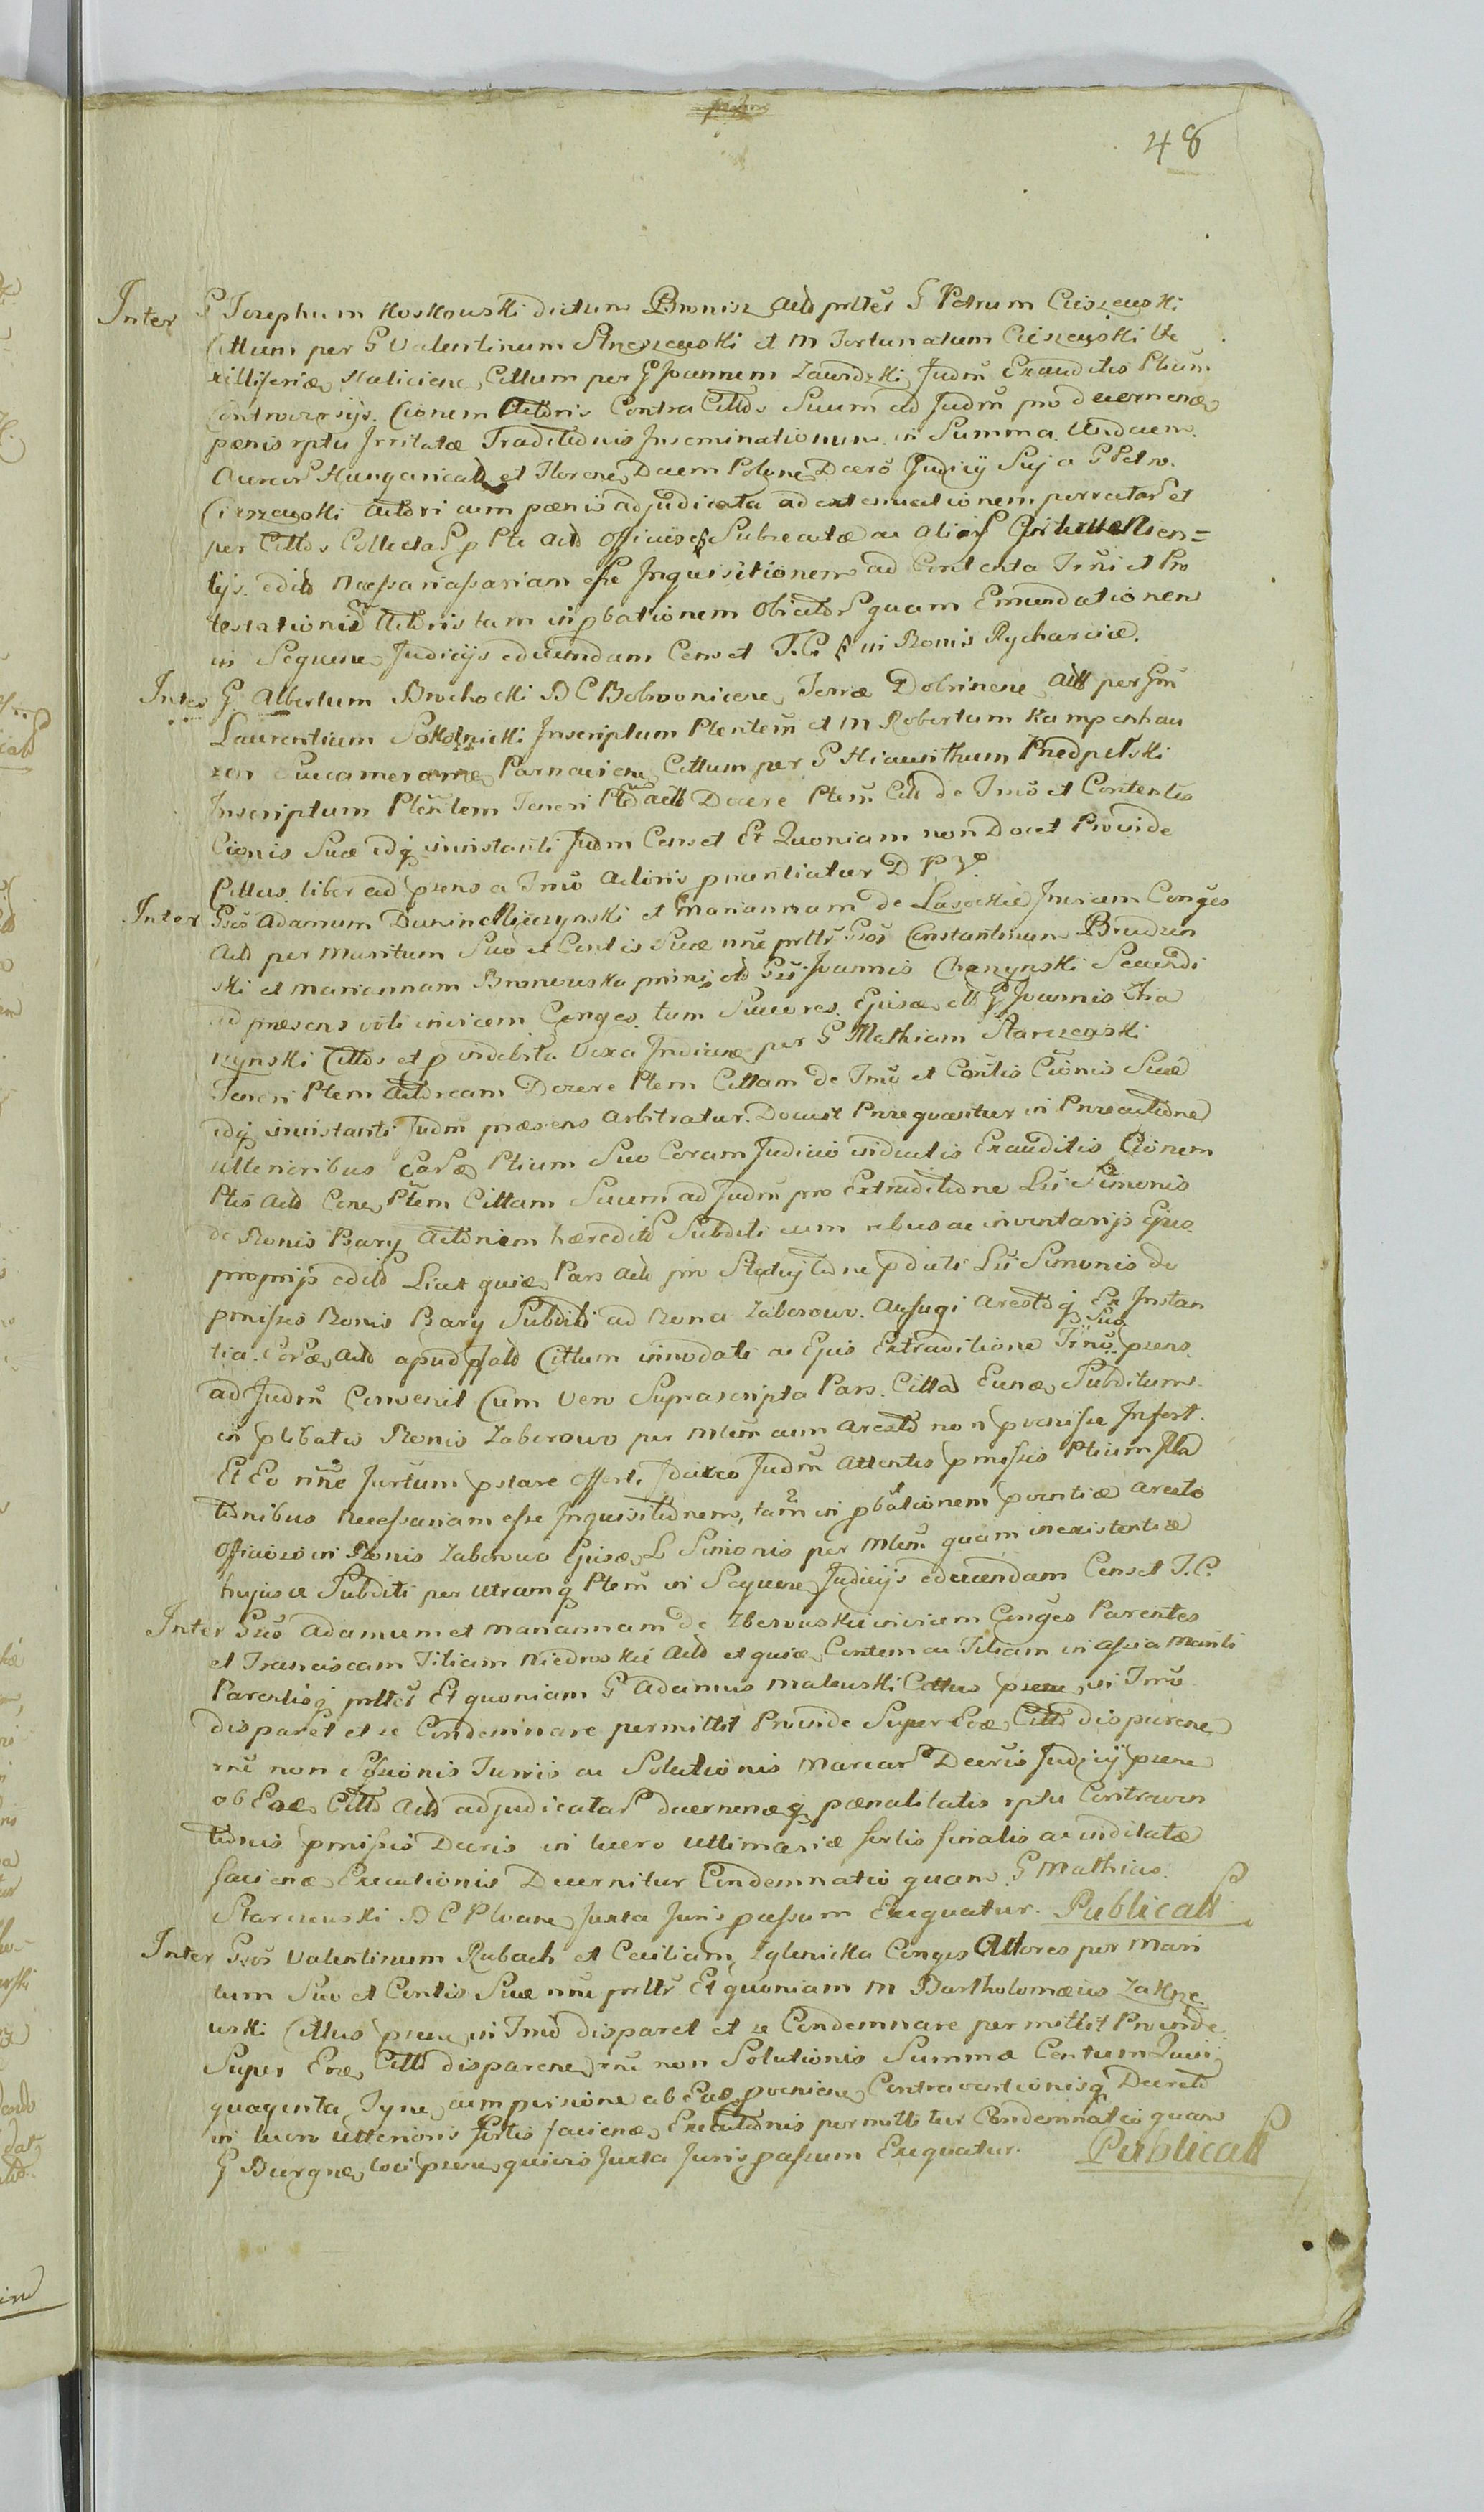 48
Inter G Josephum Koskowski dictum Bronisz Actō prltēr G Petrum Cieszewski
Cittum per G Valentinum et M Fortunatum Cieszewski Ve
xilliferidæ Haliciene, Cittum per G Joannem Zawidzki, Judm̄ Exauditis Ptium
Controversijs. Cionem Actōris Contra Cittōs Suum ad Judm̄ pro decernenæ
pœnis rptu Irritatæ Traditionis Inseminationum in Summa Undecem
Aureor Hungarical et Florene, Decem Polone, Decrō Judicij Sui a G Petro
Cieszewski Actōri cum pœnis adjudicata ad extenuationem perceptar et
per Cittōs Collectar p Pte Actō Officiose Subsecutæ ac alior
tijs editō esse Inquisitionem ad Contenta Trm̄i et Pro
testationis Actōris tam in pbationem Obictor quam Emundationem
in Sequene, Judicijs educendam Censet T. C. in Bonis Rycharcice.
Inter G Albertum Brochocki B C Bobrownicene, Terræ Dobrinene Actt per Gm̄
Laurentium Sokolnicki Inscriptum Ptentem̄ et M Robertum Kampenhau
zen Succamerarræ Parnaviene, Cittum per G Hiacinthum Predpelski
Inscriptum Ptentem Teneri Ptē Actt Docere Ptem̄ Citt de Tmō et Contentis
Cionis Suæ idq ininstanti Judm Censet Et Quoniam non Docet Proinde
Cittus liber ad prens a Tmō Actōris pnuntiatur D P V.
Inter Gsōs Adamum Dunin Mieczynski et Mariannam de Lasockie Invicem Conges
Actō per Maritum Suo et Contis Suæ nn̄e prltr̄ Gsōs Constantinum Brudzin
ski et Mariannam Bronowska primi olō Gsī Joannis Chonzynski Secundi
ad præsens voti invicem Conges tum Succores Ejusæ olō G Joannis Cha
nzynski Cittōs et p Indebita Vexa Indicenæ per G Mathiam Starczewski
Teneri Ptem Actōream Docere Ptem Cittam de Tmō et Contis Cionis Suæ
idq ininstanti Judm præsens Arbitratur. Docuit Prozequantur in Prosecutione
ulterioribus Carsæ Ptium Suo Coram Judicio inductis Exauditis Cionem
Ptis Actō Cone, Ptem̄ Cittam Suum ad Judm̄ pro Extraditione Lsī Simonis
de Bonis Bary Actōriem hæreditō Subditi cum rebus ac inventarijs Ejus
proprijs editō Licet quiæ Pars Actō pro Statuitione pdicti Lsī Simonis de
pmissis Bonis Bary Subditi ad Bona Zaborowo Aufugi Arestoq Ex Instan
tia Carsæ Actō apud Cittum innodati ac Ejus Extraditione Trm̄o p Suo prens
ad Judm̄ Convenit Cum Vero Suprascripta Pars Citta Eunæ Subditum
in plibatis Bonis Zaborowo per Mtem̄ cum Arestō non pvenisse Infert.
Et Eo nn̄e Jurtum pstare offert. Idcirco Judm̄ Attentis pmissis Ptium Alla
tionibus Necessariam esse Inquisitionem, tam in pbationem pventiæ Aresto
Officioso in Bonis Zaborowo Ejusæ L Simonis per Mtem̄ quam inexistentiæ
hujusæ Subditi per Utramq Ptem̄ in Sequene, Judicijs educendam Censet T. C.
Inter Gsōs Adamum et Mariannam de Zberowskie invicem Conges Parentes
et Franciscam Filiam Niedroskie Actō et quiæ, Contem ac Filiam in Assia Mariti
Parentisq prltēr Et quoniam G Adamus Makowski Cittus prens, in Tmō
disparet et se Condemnare permittit Proinde Super Eoæ Cittō disparene,
rn̄e non Cessionis Jurris ac Solutionis Marcar Decris Judicij prens,
ob Eoæ Cittō Actō adjudicatar decernenæq pœnalitatis rptu Contraven
tionis pmissis Decris in lucro Ultimariæ sortis finalis ac inditatæ
facienæ Executionis Decernitur Condemnatio quam G Mathias
Starczewski B C Plocene, Juxta Juris passum Exequatur. Publicatt
Inter Gsōs Valentinum Rubach et Ceciliam Zglenicka Conges Actores per Mari
tum Suo et Contis Suæ nn̄e prltr̄ Et quoniam M Bartholomæus Zakrze
wski Cittus prens, in Tmō disparet et se Condemnare permittit Proinde
Super Eoæ Cittō disparene, rn̄e non Solutionis Summæ Centum Quin
quaginta Tyne, cum pvisione ab Eaæ pveniene, Contraventionisq Decretō
in lucro Ulterioris sortis facienæ Executionis permittitur Condemnatio quam
G Burgræ, loci prens, quivis Juxta Juris passum Exequatur. Publicatt